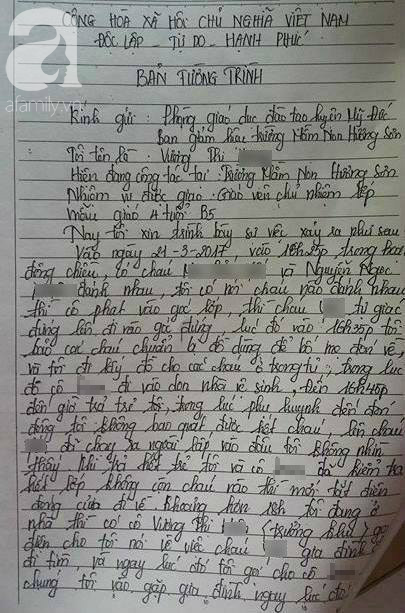 CỘNG HÒA XÃ HỘI CHỦ NGHĨA VIỆT NAM
ĐỘC LẬP - TỰ DO - HẠNH PHÚC
afamily.vn
BẢN TƯỜNG TRÌNH
Kính gửi: Phòng giáo dục đào tạo huyện Mỹ Đức
Ban giám hiệu trường Mầm Non Hương Sơn
Tôi tên là: Vương Thị
Hiện đang công tác tại: Trường Mầm Non Hương Sơn
Nhiệm vụ được giao: Giáo viên chủ nhiệm lớp
mẫu giáo 4 tuổi B5
Nay tôi xin trình bày sự việc xảy ra như sau
Vào ngày 21-3-2017 vào 16h25p, trong hoạt
động chiều, có cháu và Nguyễn Ngọc
đánh nhau, tôi có nói cháu nào đánh nhau
thì cô phạt vào góc lớp, thì cháu tự giác
đứng lên đi vào góc đứng, lúc đó vào 16h35p tôi
bảo các cháu chuẩn bị đồ dùng để bố mẹ đón về,
và tôi đi lấy đồ cho các cháu ở trong tủ, trong lúc
đó cô đi vào dọn nhà vệ sinh, Đến 16h45p
đến giờ trả trẻ tôi, trong lúc phụ huynh đến đón
đông tôi không bao quát được hết cháu, lên cháu
đã chạy ra ngoài lấp vào đâu tôi không nhìn
thấy khi trả hết trẻ tôi và cô đã kiểm tra
hết lớp không còn cháu nào thì mới tắt điện
đóng cửa đi về khoảng hơn 18h tôi đang ở
nhà thì có cô Vương Thị (trưởng khu) gọi
điện cho tôi nói về việc cháu gia đình
đi tìm, và ngay lúc đó tôi gọi cho cô
chúng tôi vào gặp gia đình ngay lúc đó